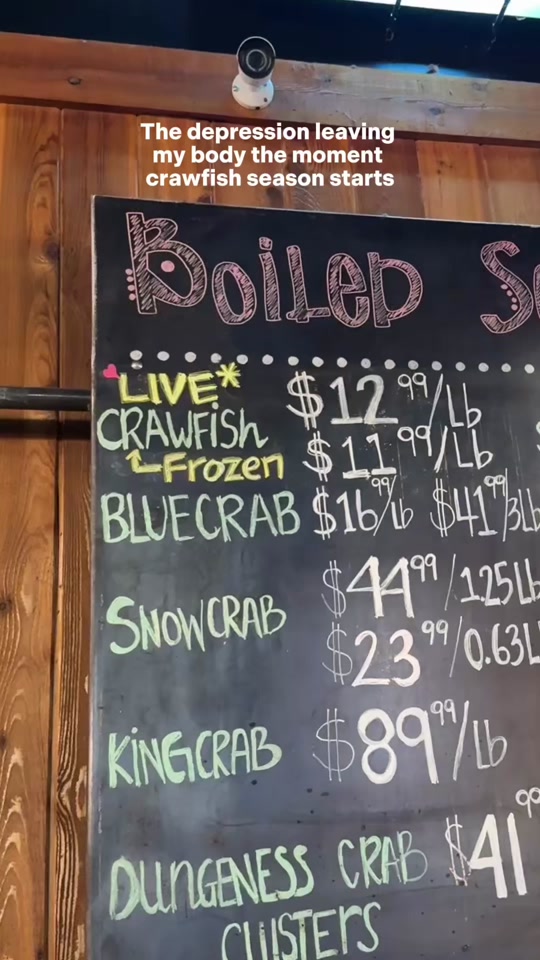 The depression leaving
my body the moment
crawfish season starts
BOILED
LIVE* $12.99/Lb
CRAWFISH
Frozen $11.99/Lb
BLUE CRAB $16.99/lb $41.99/3Lb
SNOW CRAB $44.99/1.25Lb
$23.99/0.63L
KING CRAB $89.99/Lb
DUNGENESS CRAB $41
CLUSTERS